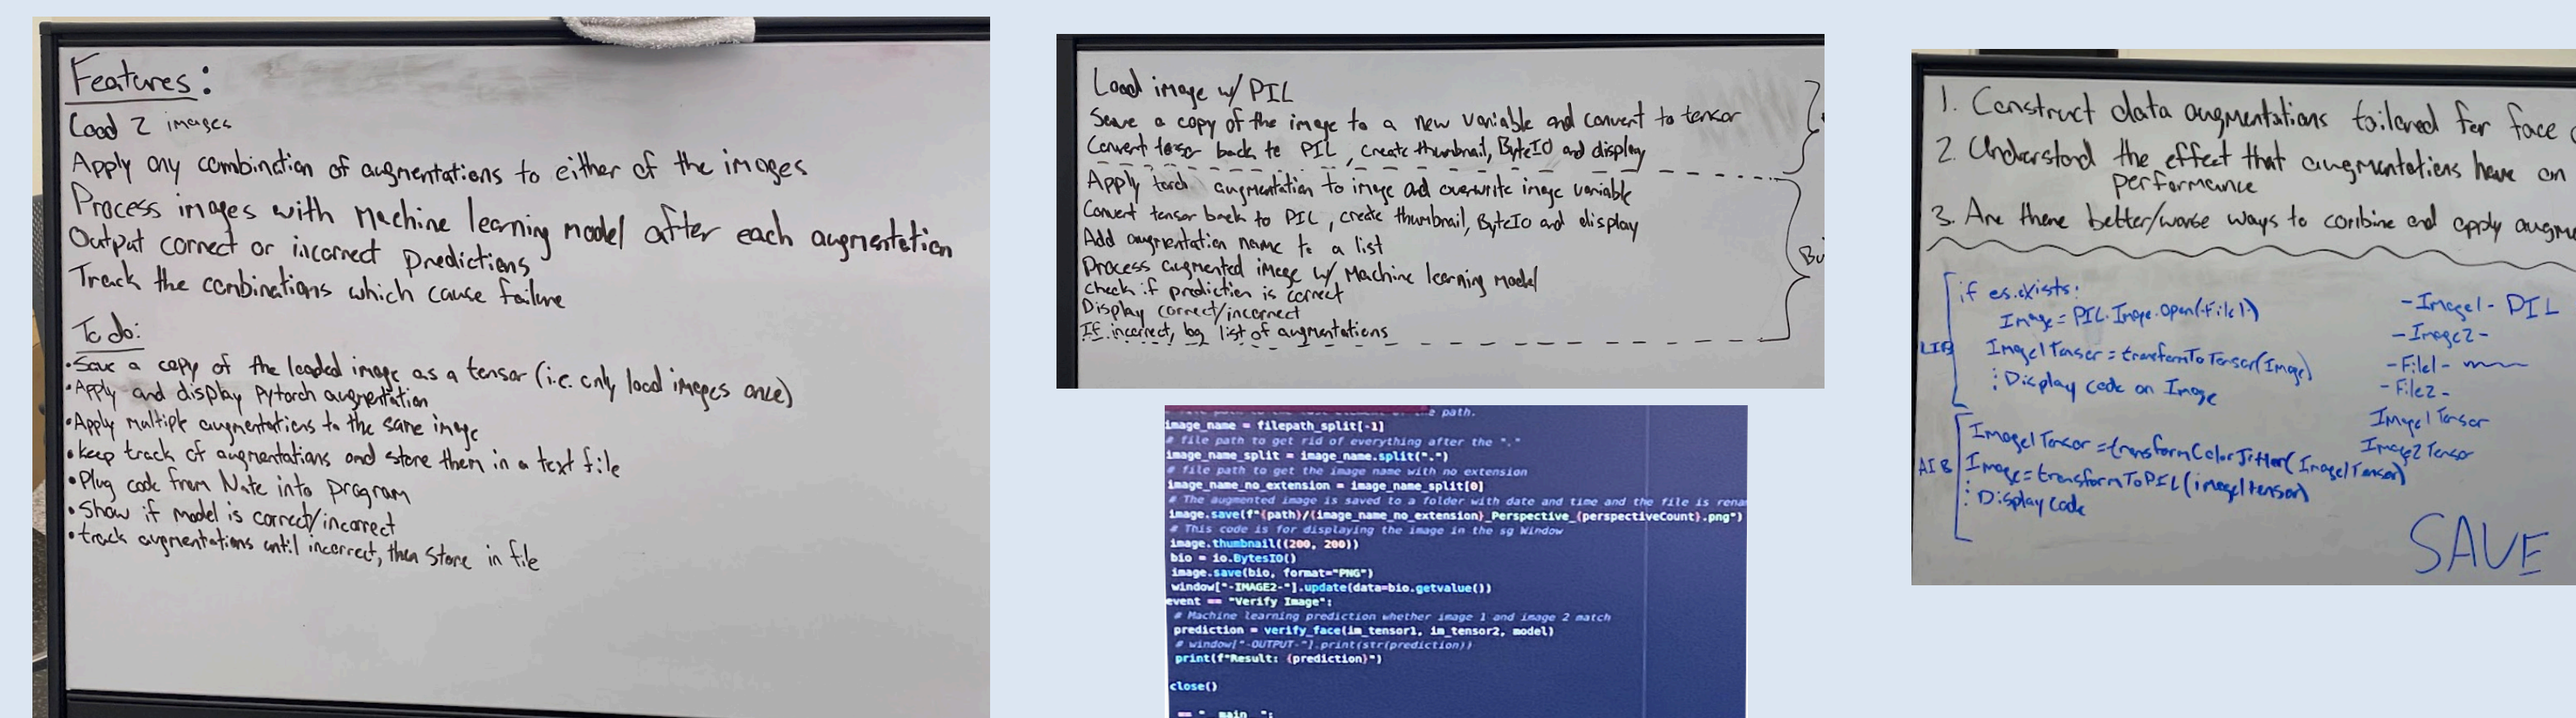 Features:
Load 2 images
Apply any combination of augmentations to either of the images
Process images with Machine learning model after each augmentation
Output correct or incorrect predictions
Track the combinations which cause failure
To do:
•Save a copy of the loaded image as a tensor (i.e. only load images once)
•Apply and display Pytorch augmentation
•Apply multiple augmentations to the same image
•keep track of augmentations and store them in a text file
•Plug code from Nate into program
•Show if model is correct/incorrect
•track augmentations until incorrect, then store in file
Load image w/ PIL
Save a copy of the image to a new variable and convert to tensor
Convert tensor back to PIL, create thumbnail, ByteIO and display
Apply torch augmentation to image and overwrite image variable
Convert tensor back to PIL, create thumbnail, ByteIo and display
Add augmentation name to a list
Process augmented image w/ Machine learning model
check if prediction is correct
Display correct/incorrect
If incorrect, log list of augmentations
Bu
# file path to the last element of the path.
image_name = filepath_split[-1]
# file path to get rid of everything after the "."
image_name_split = image_name.split(".")
# file path to get the image name with no extension
image_name_no_extension = image_name_split[0]
# The augmented image is saved to a folder with date and time and the file is rena
image.save(f"{path}/{image_name_no_extension}_Perspective_{perspectiveCount}.png")
# This code is for displaying the image in the sg Window
image.thumbnail((200, 200))
bio = io.BytesIO()
image.save(bio, format="PNG")
window["-IMAGE2-"].update(data=bio.getvalue())
event == "Verify Image":
# Machine learning prediction whether image 1 and image 2 match
prediction = verify_face(im_tensor1, im_tensor2, model)
# window["-OUTPUT-"].print(str(prediction))
print(f"Result: {prediction}")
close()
== "__main__":
1. Construct data augmentations tailored for face
2. Understand the effect that augmentations have on
performance
3. Are there better/worse ways to combine and apply augm
if os.exists:
Image = PIL.Image.open(-File1-)
LIB
Image1Tensor = transformToTensor(Image)
: Display code on Image
Image1Tensor = transformColorJitter(Image1Tensor)
AIB
Image = transformToPIL(image1tensor)
: Display code
-Image1- PIL
-Image2-
-File1-
-File2-
Image1Tensor
Image2Tensor
SAVE